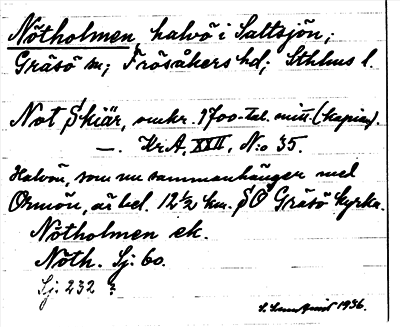 Nötholmen, halvö i Saltsjön,
Gräsö sn; Frösåkers hd; Sthlms l.
Not Skiär, omkr. 1700-tal. mitt (kopia).
—. KrA, XXII, N:o 35.
Halvön, som nu sammanhänger med
Ormön, är bel. 12½ km. SO Gräsö kyrka.
Nötholmen ek.
Nöth. Sj. 60.
Sj. 232 ?
1936.